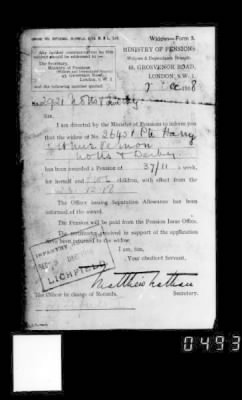 Widows—Form 3.
MINISTRY OF PENSIONS
Widows & Dependants Branch
48, GROSVENOR ROAD,
LONDON, S.W. 1.
Any further communication on this
subject should be addressed to:—
The Secretary,
Ministry of Pensions
Grosvenor Road,
London, S.W. 1.
and the following number quoted
Sir,
I am directed by the Minister of Pensions to inform you
that the widow of No. 26458 Pte Harry
Arthur Vernon
Notts & Derby
has been awarded a Pension of 37/11 a week,
for herself and children, with effect from the
23.12.18
The Officer issuing Separation Allowance has been
informed of the award.
The Pension will be paid from the Pension Issue Office.
The certificates received in support of the application
have been returned to the widow.
I am, Sir,
Your obedient Servant,
INFANTRY
DEC
LICHFIELD
Matthew Nathan
Secretary.
The Officer in charge of Records.
0493